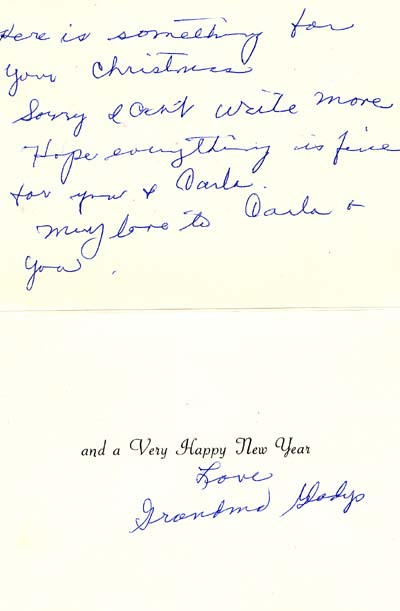 Here is something for
your Christmas
Sorry I can't write more
Hope everything is fine
for you & Darla.
my love to Darla &
you.
and a Very Happy New Year
Love
Grandma Gladys